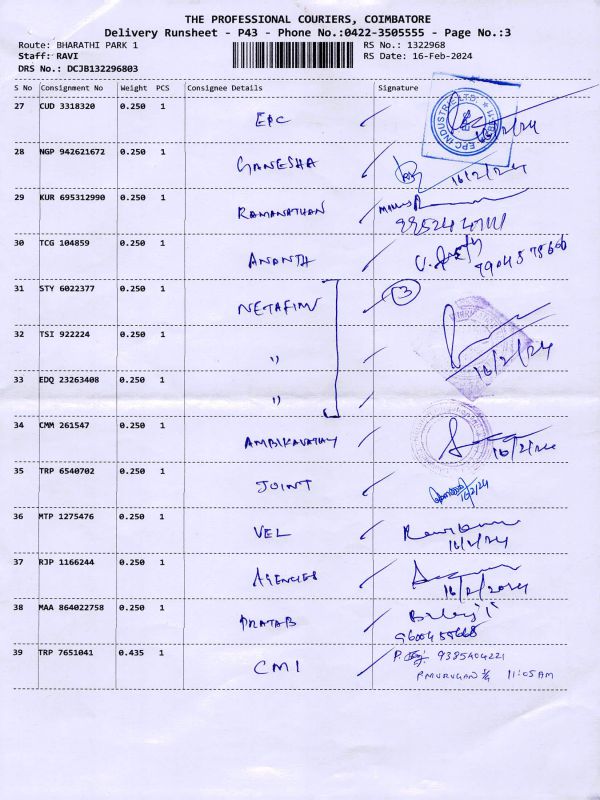 THE PROFESSIONAL COURIERS, COIMBATORE
Delivery Runsheet - P43 - Phone No.:0422-3505555 - Page No.:3
Route: BHARATHI PARK 1 RS No.: 1322968
Staff: RAVI RS Date: 16-Feb-2024
DRS No.: DCJB132296803
S No Consignment No Weight PCS Consignee Details Signature
27 CUD 3318320 0.250 1 EPC EPC INDUSTRIE LTD. 16/2/24
28 NGP 942621672 0.250 1 GANESHA 16/2/24
29 KUR 695312990 0.250 1 RAMANATHAN
30 TCG 104859 0.250 1 ANANTH
31 STY 6022377 0.250 1 NETAFIM 3
32 TSI 922224 0.250 1 " 16/2/24
33 EDQ 23263408 0.250 1 "
34 CMM 261547 0.250 1 AMBIKAVATHY 16/2/24
35 TRP 6540702 0.250 1 JOINT 16/2/24
36 MTP 1275476 0.250 1 VEL 16/2/24
37 RJP 1166244 0.250 1 AGENCIES 16/2/2024
38 MAA 864022758 0.250 1 PRATAB
39 TRP 7651041 0.435 1 CMI 9385404221
P MURUGAN 11:05 AM